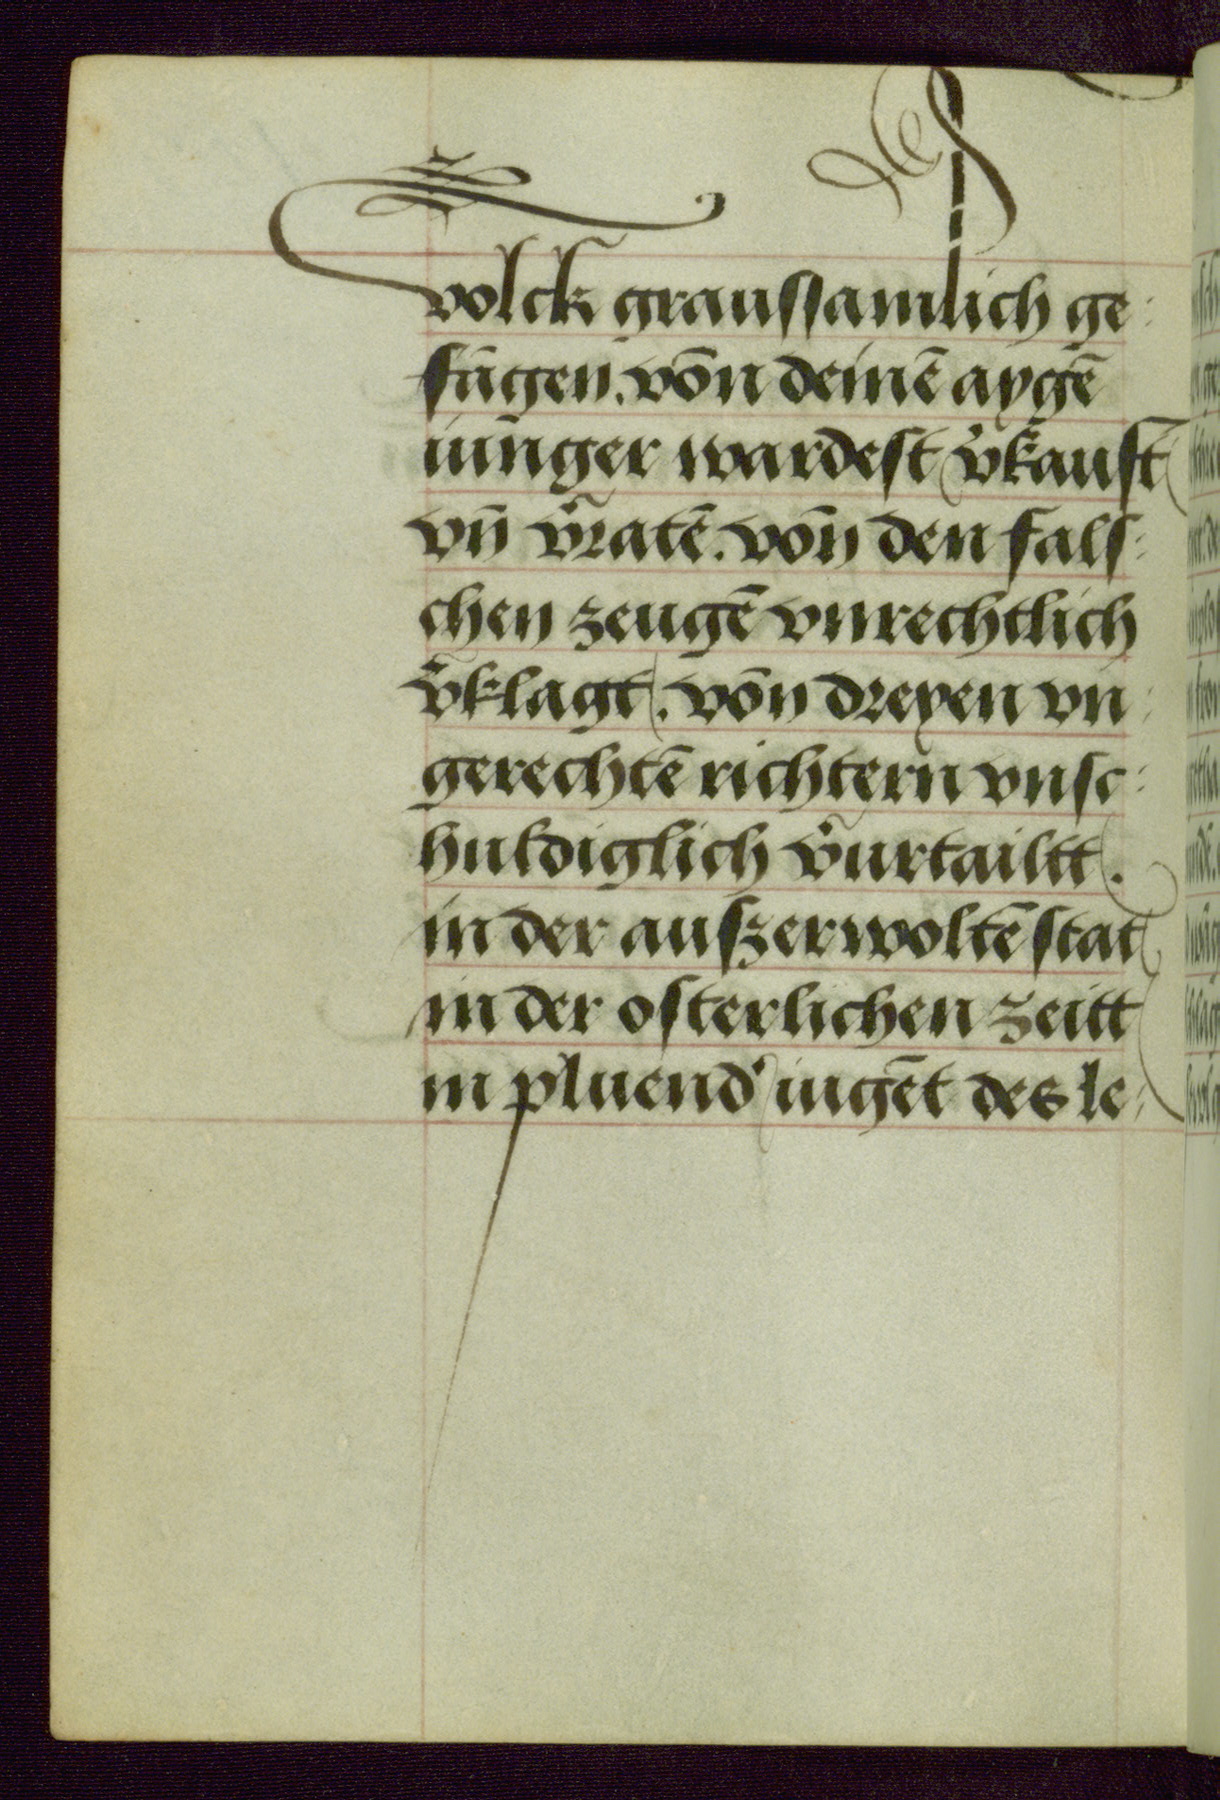 volck graussamlich ge:
fāgen. von deinē aygē
iunger wardest v̄kauft
vn̄ v̄ratē. von den fals:
chen zeugē vnrechtlich
v̄klagt. von dreyen vn:
gerechtē richtern vnsc:
huldiglich v̄urtailtt.
in der auszerwoltē stat
in der osterlichen zeitt
in pluend' iugēt des le: